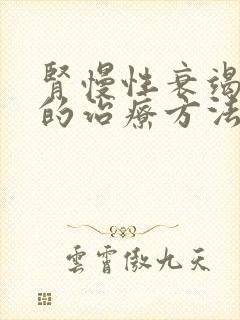 腎慢性衰竭
的治療方法
雲霄傲九天